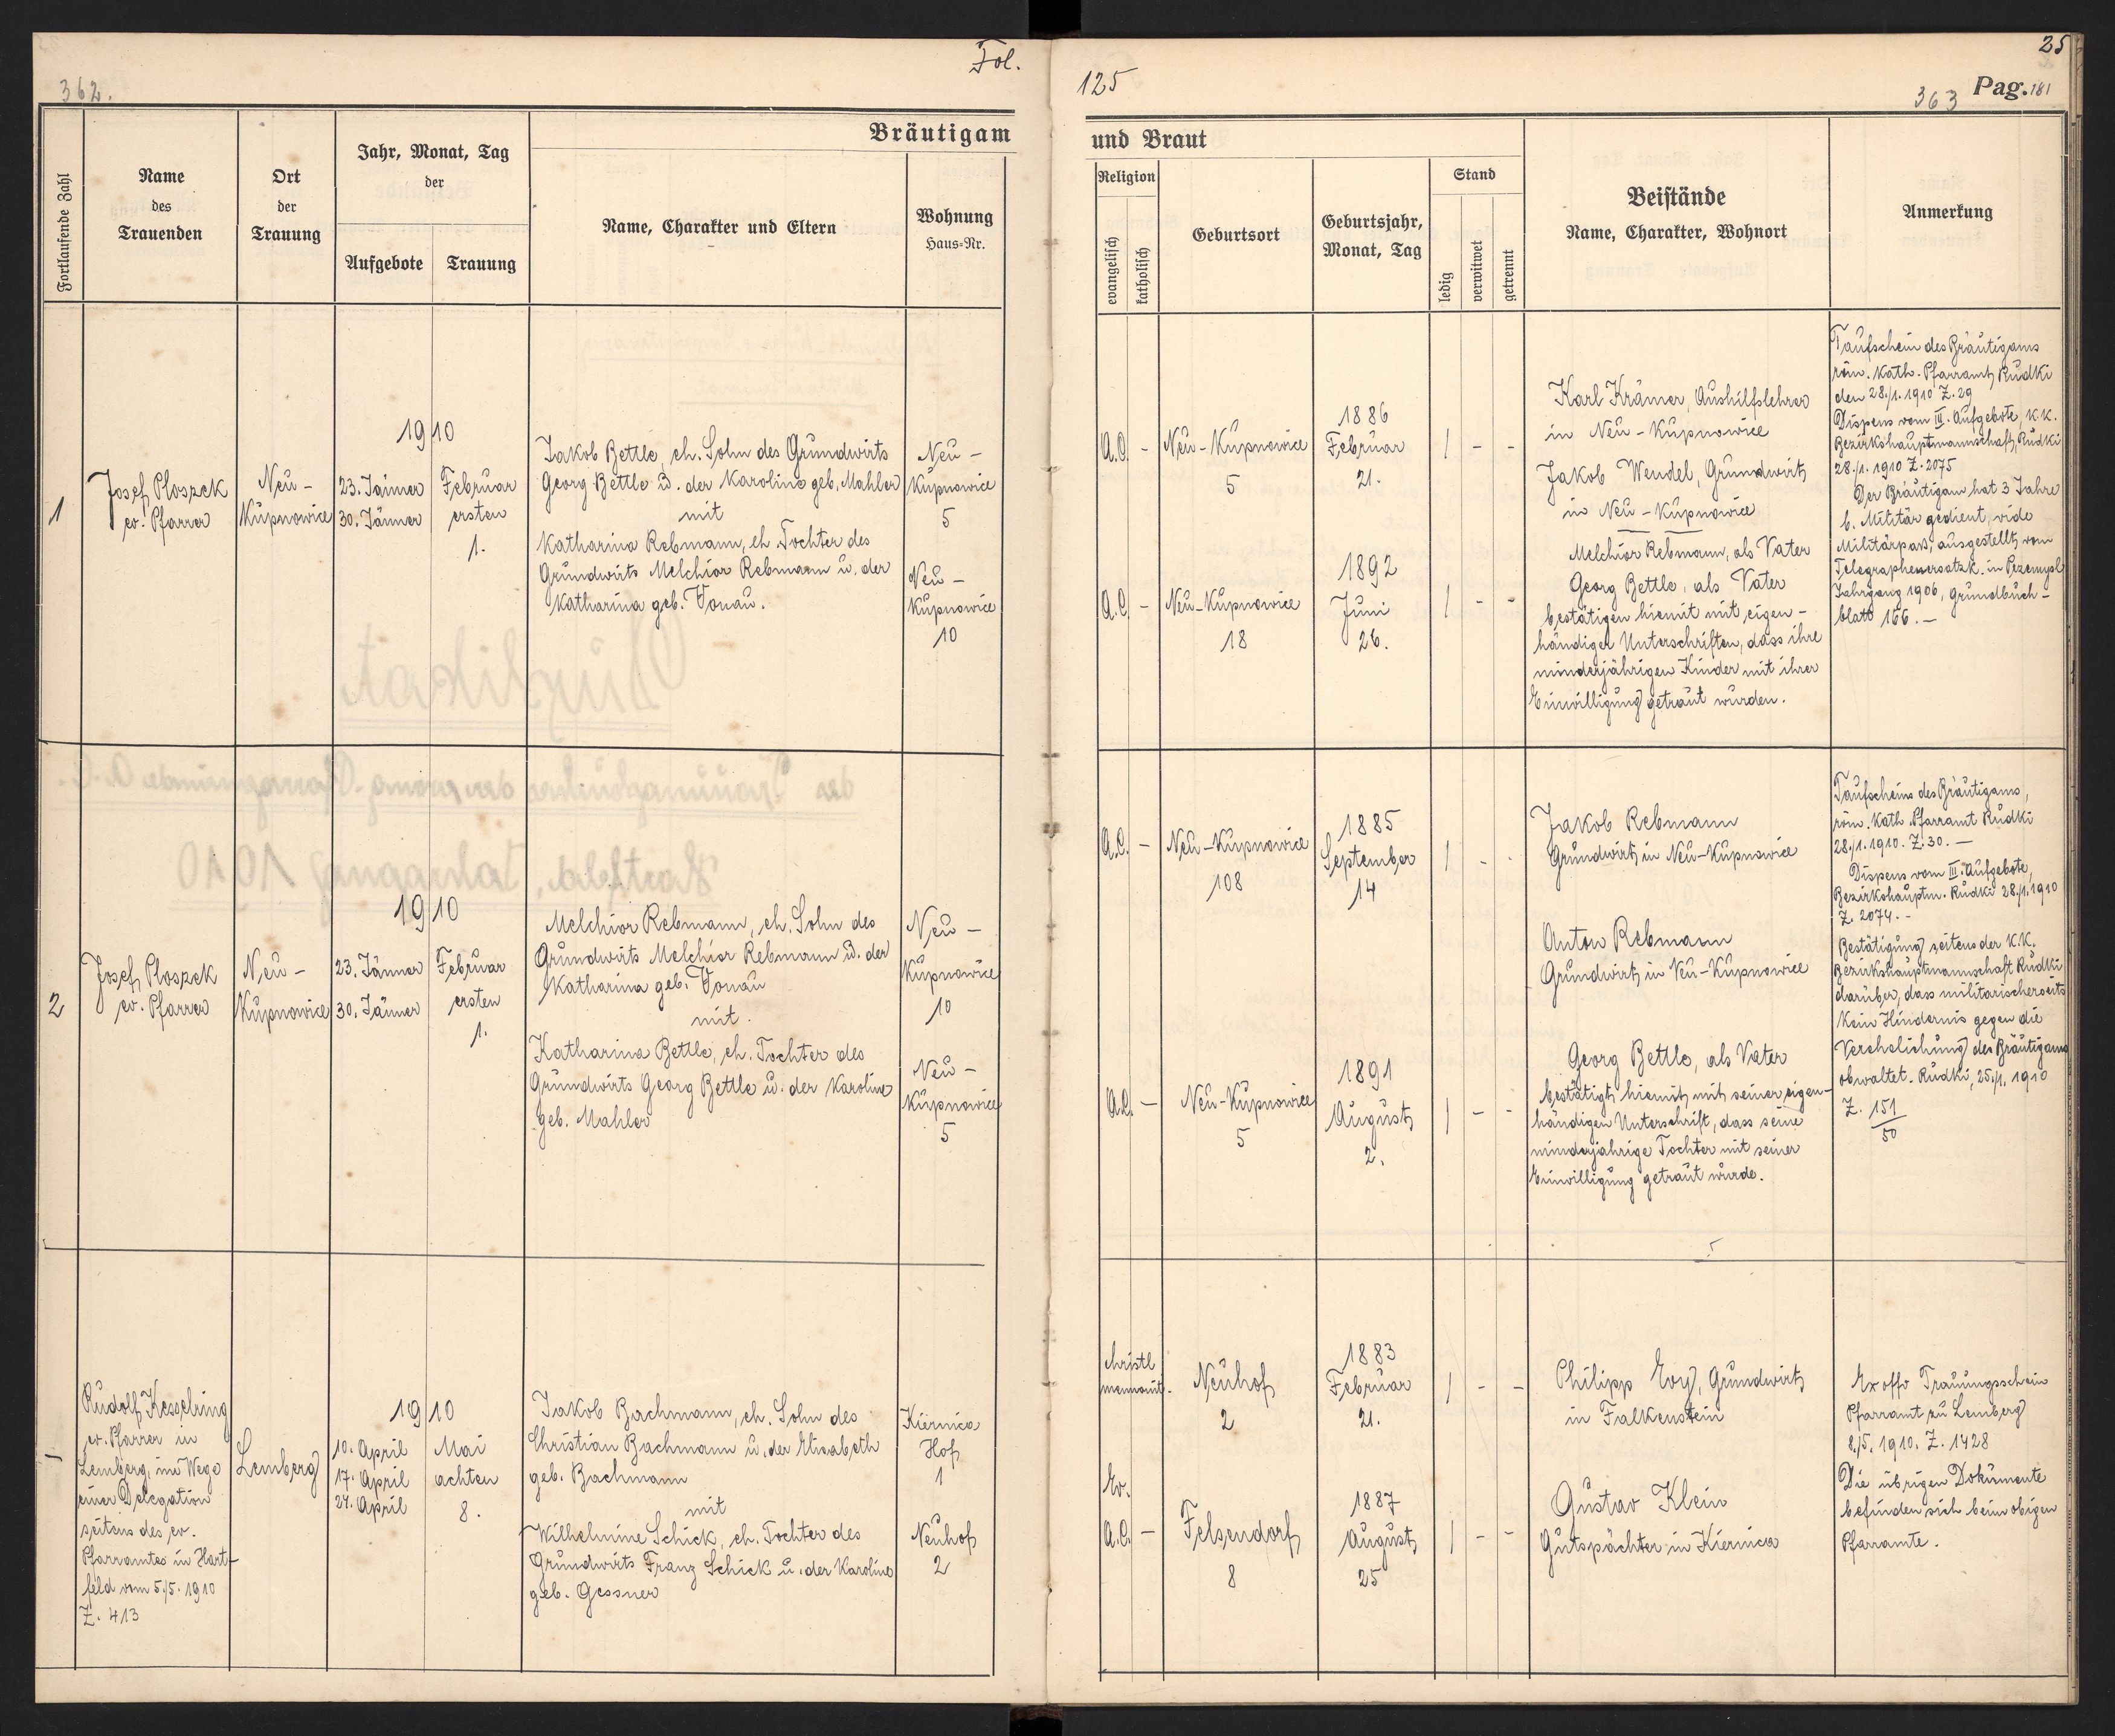 362.
Fol.
125
25
363 Pag. 181
Bräutigam
und Braut
Fortlaufende Zahl
Name
des
Trauenden
Ort
der
Trauung
Jahr, Monat, Tag
der
Aufgebote
Trauung
Name, Charakter und Eltern
Wohnung
Haus-Nr.
Religion
evangelisch
katholisch
Geburtsort
Geburtsjahr,
Monat, Tag
Stand
ledig
verwitwet
getrennt
Beistände
Name, Charakter, Wohnort
Anmerkung
1
Josef Ploszek
ev. Pfarrer
Neu-
Kupnowice
1910
23. Jänner
30. Jänner
Februar
ersten
1.
Jakob Bettle, eh. Sohn des Grundwirts
Georg Bettle u. der Karoline geb. Mahler
mit
Katharina Rebmann, eh. Tochter des
Grundwirts Melchior Rebmann u. der
Katharina geb. Vonau.
Neu-
Kupnowice
5
Neu-
Kupnowice
10
A.C. -
Neu-Kupnowice
5
1886
Februar
21.
| - -
A.C. -
Neu-Kupnowice
18
1892
Juni
26.
| - -
Karl Krämer, Aushilfslehrer
in Neu-Kupnowice
Jakob Wendel, Grundwirt
in Neu-Kupnowice
Melchior Rebmann, als Vater
Georg Bettle, als Vater
bestätigen hiemit mit eigen-
händiger Unterschriften, dass ihre
minderjährigen Kinder mit ihrer
Einwilligung getraut wurden.
Taufschein des Bräutigams
röm. kath. Pfarramt Rudki
den 28./1. 1910 Z. 29
Dispens vom III. Aufgebote, k.k.
Bezirkshauptmannschaft, Rudki
28./1. 1910 Z. 2075
Der Bräutigam hat 3 Jahre
b. Militär gedient, vide
Militärpass, ausgestellt vom
Telegraphenersatzk. in Przemysl
Jahrgang 1906, Grundbuch-
blatt 166. -
2
Josef Ploszek
ev. Pfarrer
Neu-
Kupnowice
1910
23. Jänner
30. Jänner
Februar
ersten
1.
Melchior Rebmann, eh. Sohn des
Grundwirts Melchior Rebmann u. der
Katharina geb. Vonau
mit.
Katharina Bettle, eh. Tochter des
Grundwirts Georg Bettle u. der Karoline
geb. Mahler
Neu-
Kupnowice
10
Neu-
Kupnowice
5
A.C. -
Neu-Kupnowice
108
1885
September
14
| - -
A.C. -
Neu-Kupnowice
5
1891
August
2.
| - -
Jakob Rebmann
Grundwirt in Neu-Kupnowice
Anton Rebmann
Grundwirt in Neu-Kupnowice
Georg Bettle, als Vater
bestätigt hiemit mit seiner eigen-
händigen Unterschrift, dass seine
minderjährige Tochter mit seiner
Einwilligung getraut wurde.
Taufscheins des Bräutigams,
röm. kath. Pfarramt Rudki
28./1. 1910. Z. 30. -
Dispens vom III. Aufgebote,
Bezirkshauptm. Rudki 28./1. 1910
Z. 2074. -
Bestätigung seitens der k.k.
Bezirkshauptmannschaft Rudki
darüber, dass militärischerseits
kein Hindernis gegen die
Verehelichung des Bräutigams
obwaltet. Rudki, 25./1. 1910
Z. 151/50
-
Rudolf Kesselring
ev. Pfarrer in
Lemberg, im Wege
einer Delegation
seitens des ev.
Pfarramtes in Hart-
feld vom 5./5. 1910
Z. 413
Lemberg
1910
10. April
17. April
24. April
Mai
achten
8.
Jakob Bachmann, eh. Sohn des
Christian Bachmann u. der Elisabeth
geb. Bachmann
mit
Wilhelmine Schick, eh. Tochter des
Grundwirts Franz Schick u. der Karoline
geb. Gessner
Kiernica
Hof
1
Neuhof
2
christl
mennonit.
Neuhof
2
1883
Februar
21.
| - -
Ev.
A.C. -
Felsendorf
8
1887
August
25
| - -
Philipp Ewy, Grundwirt
in Falkenstein
Gustav Klein
Gutspächter in Kiernica
Ex offo Trauungsschein
Pfarramt zu Lemberg
8./5. 1910. Z. 1428
Die übrigen Dokumente
befinden sich beim obigen
Pfarramte.